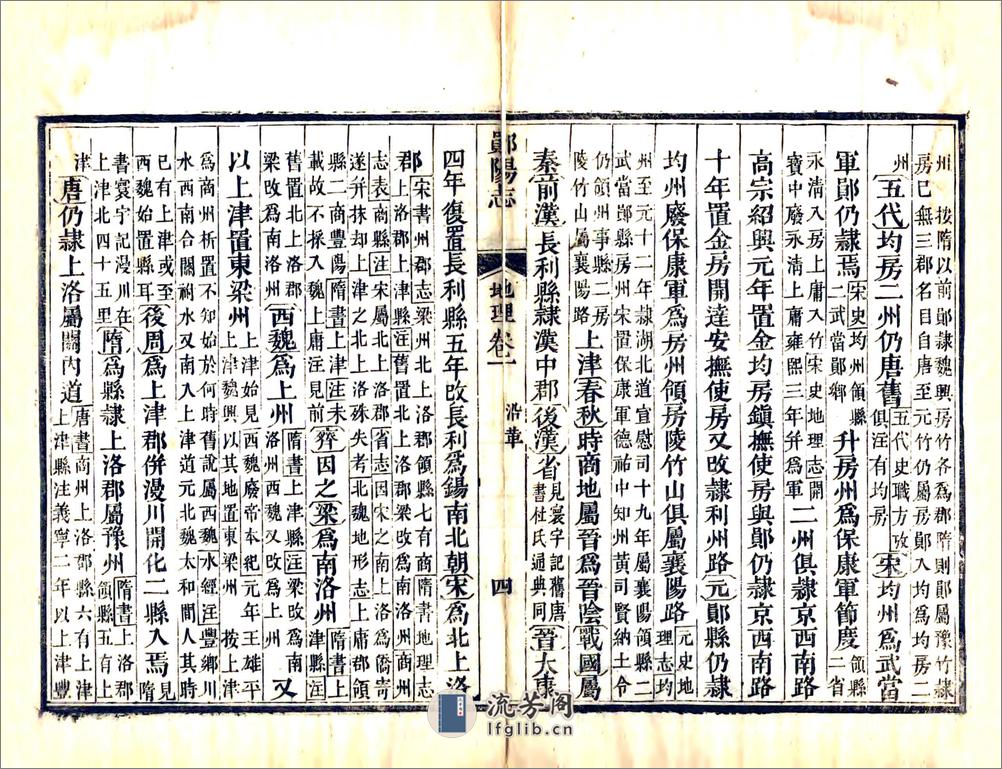 州 按隋以前鄖隸魏興房竹各為郡隋則鄖屬豫竹隸
房已無三郡名目自唐至元竹仍屬房鄖入均為均房二
州五代均房二州仍唐舊五代史職方攷俱注有均房宋均州為武當
軍鄖仍隸焉宋史均州領縣二武當鄖鄉升房州為保康軍節度領縣二省
永清入房上庸入竹宋史地理志開寶中廢永淸上庸雍熙三年併為軍二州俱隸京西南路
高宗紹興元年置金均房鎮撫使房與鄖仍隸京西南路
十年置金房開達安撫使房又改隸利州路元鄖縣仍隸
均州廢保康軍為房州領房陵竹山俱屬襄陽路元史地理志均
州至元十二年隸湖北道宣慰司十九年屬襄陽領縣二
武當鄖縣房州宋置保康軍德祐中知州黃司賢納土令
仍領州事縣二房陵竹山屬襄陽路 上津春秋時商地屬晉為晉陰戰國屬
秦前漢長利縣隸漢中郡後漢省見寰宇記舊唐書杜氏通典同晉太康
鄖陽志 地理卷一 沿革 四
四年復置長利縣五年改長利為錫南北朝宋為北上洛
郡宋書州郡志梁州北上洛郡領縣七有商隋書地理志
上洛郡上津縣注舊置北上洛郡梁改為南洛州商州
志表商縣注宋屬北上洛郡省志因宋之南上洛為僑寄
遂并抹却上津之北上洛殊失考北魏地形志上庸郡領
縣二商豐陽隋書上津注未載故不採入魏上庸注見前齊因之梁為南洛州隋書上津縣注
舊置北上洛郡梁改為南洛州西魏為上州隋書上津縣注梁改為南洛州西魏又改為上州又
以上津置東梁州上津始見西魏廢帝本紀元年王雄平魏興以其地置東梁州 按上津
為商州析置不知始於何時舊說屬西魏水經注豐鄉川
水西南合關祔水又南入上津道元北魏太和間人其時
已有上津或至西魏始置縣耳後周為上津郡併漫川開化二縣入焉見隋
書寰宇記漫川在上津北四十五里隋為縣隸上洛郡屬豫州隋書上洛郡領縣五有上
津唐仍隸上洛屬關內道唐書商州上洛郡縣六有上津上津縣注義寧二年以上津豐
流芳阁
lfglib.cn